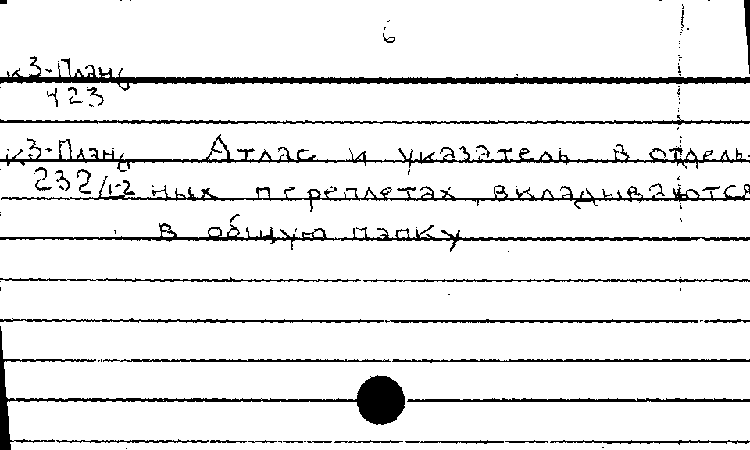 6
К3-План
423
К3-План Атлас и указатель в отдель-
232/1-2 ных переплетах, вкладываются
в общую папку